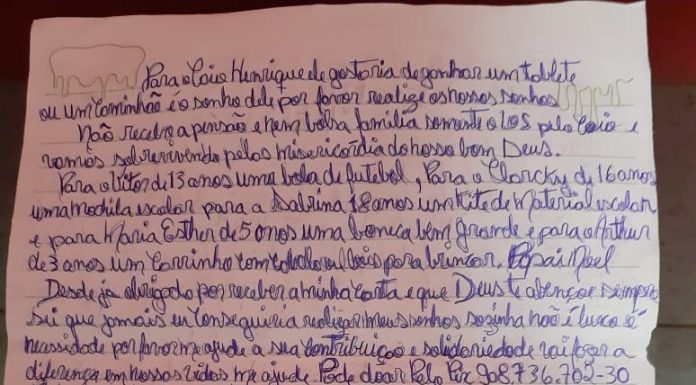 Para o Caio Henrique ele gostaria de ganhar um tablete
ou um Caminhão é o sonho dele por favor realize os nossos sonhos
Não recebo a pensão e nem bolsa família somente o LOS pelo Caio e
vamos sobrevivendo pelas misericordia do nosso bom Deus.
Para o Vitor de 13 anos uma bola de futebol, Para o Clarcky de 16 anos
uma mochila escolar para a Sabrina 18 anos um Kite de Material escolar
e para Maria Esther de 5 anos uma boneca bem grande e para o Arthur
de 3 anos um Carrinho com para brincar. Papai Noel
Desde já obrigado por receber a minha Carta e que Deus te abençoe sempre
sei que jamais eu Conseguiria realizar meus sonhos sozinha não é luxo é
necessidade por favor me ajude a sua Contribuição e solidariedade vai fazer a
diferença em nossas vidas me ajude. Pode doar Pelo Pix 908736.702-30